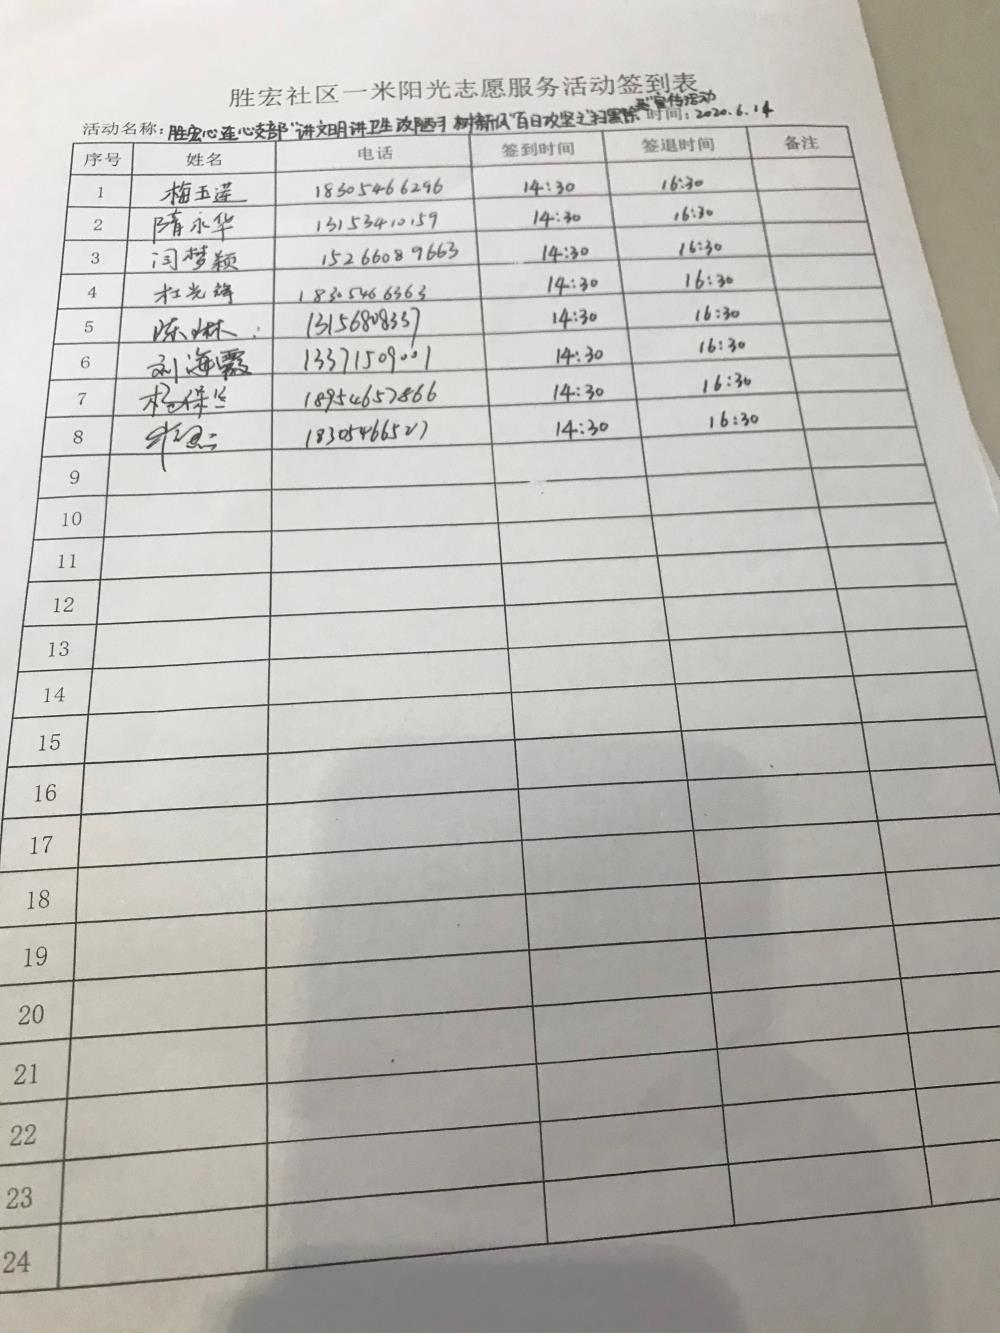 胜宏社区一米阳光志愿服务活动签到表
活动名称：胜宏心连心支部"讲文明讲卫生改陋习树新风"百日攻坚之"扫黑除恶"宣传活动 时间：2020.6.14
序号 姓名 电话 签到时间 签退时间 备注
1 梅玉莲 18305466296 14:30 16:30
2 隋永华 13153410159 14:30 16:30
3 闫梦颖 15266089663 14:30 16:30
4 杜光辉 18305466363 14:30 16:30
5 陈琳 13156808337 14:30 16:30
6 刘海霞 13371509001 14:30 16:30
7 杨保兰 18954657866 14:30 16:30
8 18305466527 14:30 16:30
9
10
11
12
13
14
15
16
17
18
19
20
21
22
23
24